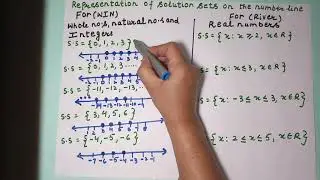 Representation of solution sets on the number line
FOR (WIN)
Whole no;s, natural no;s and
Integers
S·S = {0, 1, 2, 3}
S·S = {0, 1, 2, 3, ....
S·S = {-11, -12, -13, ...
S·S = {3, 4, 5, 6}
S·S = {-4, -5, -6}
-7 -6 -5 -4 -3 -2 -1
FOR (River)
Real numbers
S·S = {x: x ≥ 2, x∈R}
S·S = {x: x ≤ 3, x∈R}
S·S = {x: -3 ≤ x ≤ 3, x∈R}
S·S = {x: 2 ≤ x ≤ 5, x∈R}